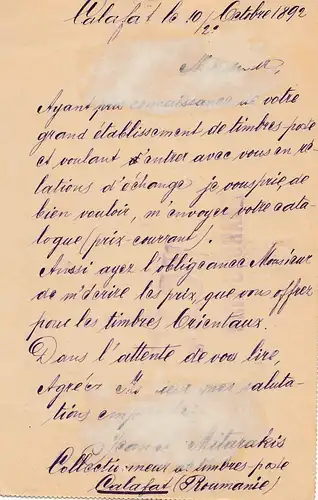 Calafat le 10/22 Octobre 1892
Ayant pris connaissance de votre
grand établissement de timbres-poste
et voulant d'entrer avec vous en ré-
lations d'échange je vous prie de
bien vouloir, m'envoyer votre cata-
logue (prix-courrant).
Ainsi ayez l'obligeance Monsieur
de m'écrire les prix, que vous offrez
pour les timbres Orientaux.
Dans l'attente de vous lire,
Agréez mes saluta-
tions
Mitarakis
Collectionneur de timbres-poste
Calafat (Roumanie)